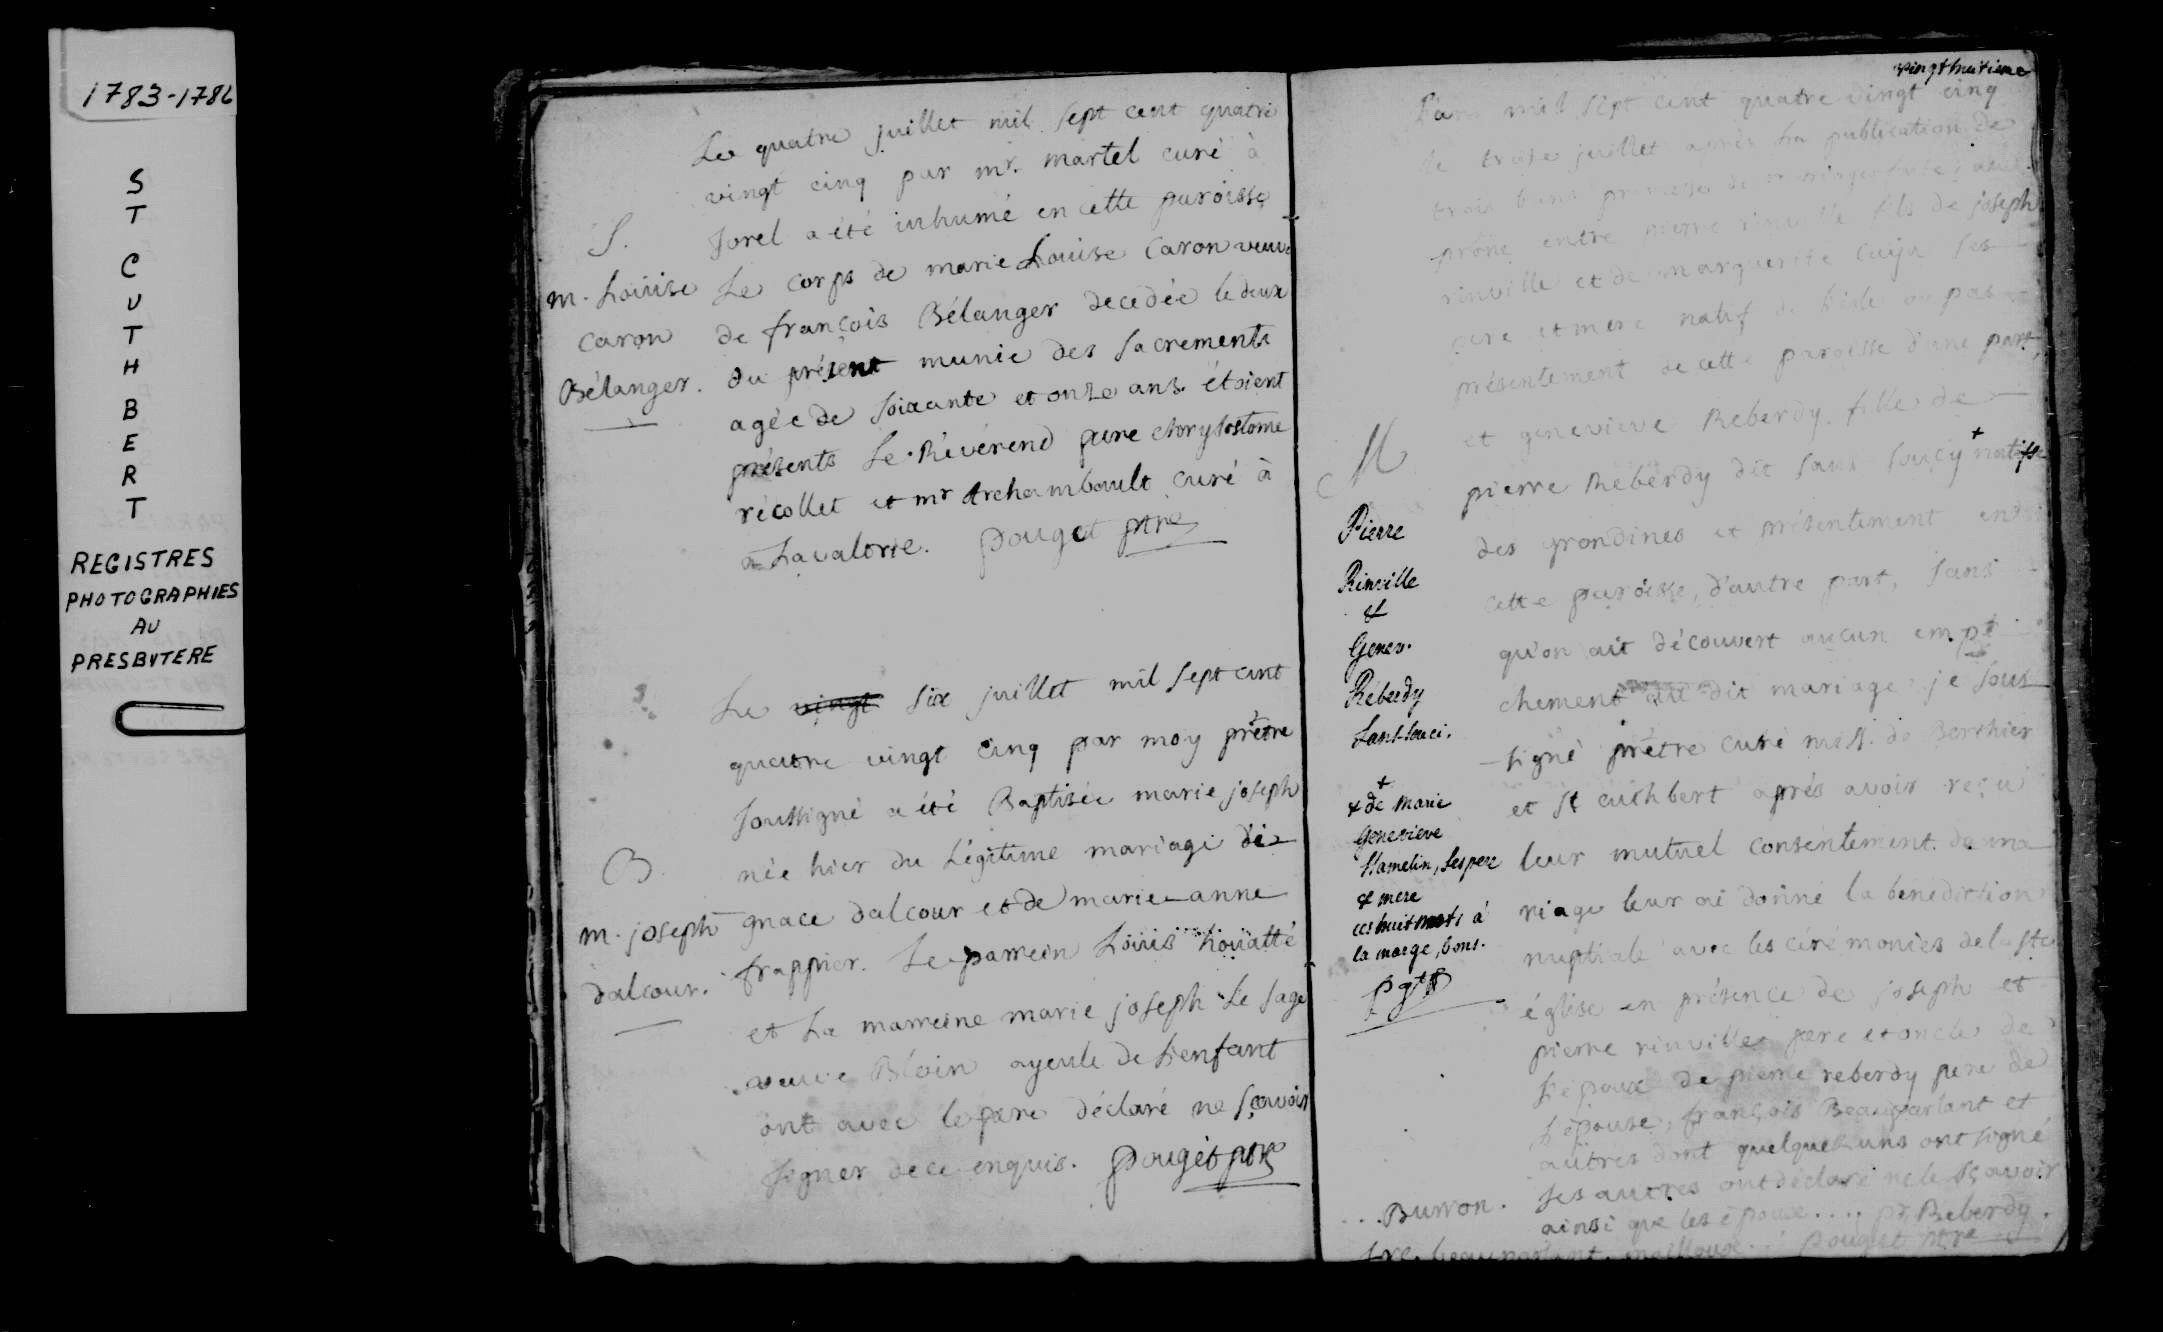 1783-1786
ST CUTHBERT
REGISTRES
PHOTOGRAPHIES
AU
PRESBYTERE
Le quatre juillet mil sept cent quatre
vingt cinq par mr. martel curé à
Sorel a été inhumé en cette paroisse
S.
m. Louise
Caron
Bélanger.
Le corps de marie Louise Caron veuve
de françois Bélanger decedée le deux
du présent munie des sacrements
agée de soixante et onze ans étoient
présents Le Révérend pere chrysostome
récollet et mr Archambault curé à
a Lavaltrie. pouget ptre
Le vingt six juillet mil sept cent
quatre vingt cinq par moy prêtre
soussigné a été Baptisée marie joseph
née hier du Légitime mariage di-
B.
m. joseph
dalcour.
gnace dalcour et de marie-anne
frappier. Le parrein Louis houatté
et La marreine marie joseph Le sage
veuve Bloin ayeule de L'enfant
ont avec le pere déclaré ne sçavoir
signer de ce enquis. pouget ptre
vingt huitieme
L'an mil sept cent quatre vingt cinq
le treize juillet après La publication de
trois bans
prône entre pierre rinville fils de joseph
rinville et de marguerite
pere et mere natif de
présentement de cette paroisse d'une part,
et genevieve Reberdy fille de
M
pierre Reberdy dit sans soucy + natifve
des grondines et présentement en
cette paroisse, d'autre part, sans
qu'on ait découvert aucun empê
chement au dit mariage je sous
signé prêtre curé miss. de Berthier
et St cuthbert après avoir reçu
leur mutuel consentement de ma
riage leur ai donné la bénédiction
nuptiale avec les cérémonies de la ste
église en présence de joseph et
pierre rinville pere et oncle de
L'époux de pierre reberdy pere de
L'épouse, françois Beauparlant et
autres dont quelques uns ont signé
Les autres ont déclaré ne le sçavoir
ainsi que les époux.... pr Reberdy.
Pierre
Rinville
&
Genev.
Reberdy
Sans-souci.
+
& de Marie
Genevieve
Hamelin, ses pere
& mere
ces huit mots à
la marge, bons.
pgt p
...Burron.
frc. beauparlant. mailloux. pouget ptre